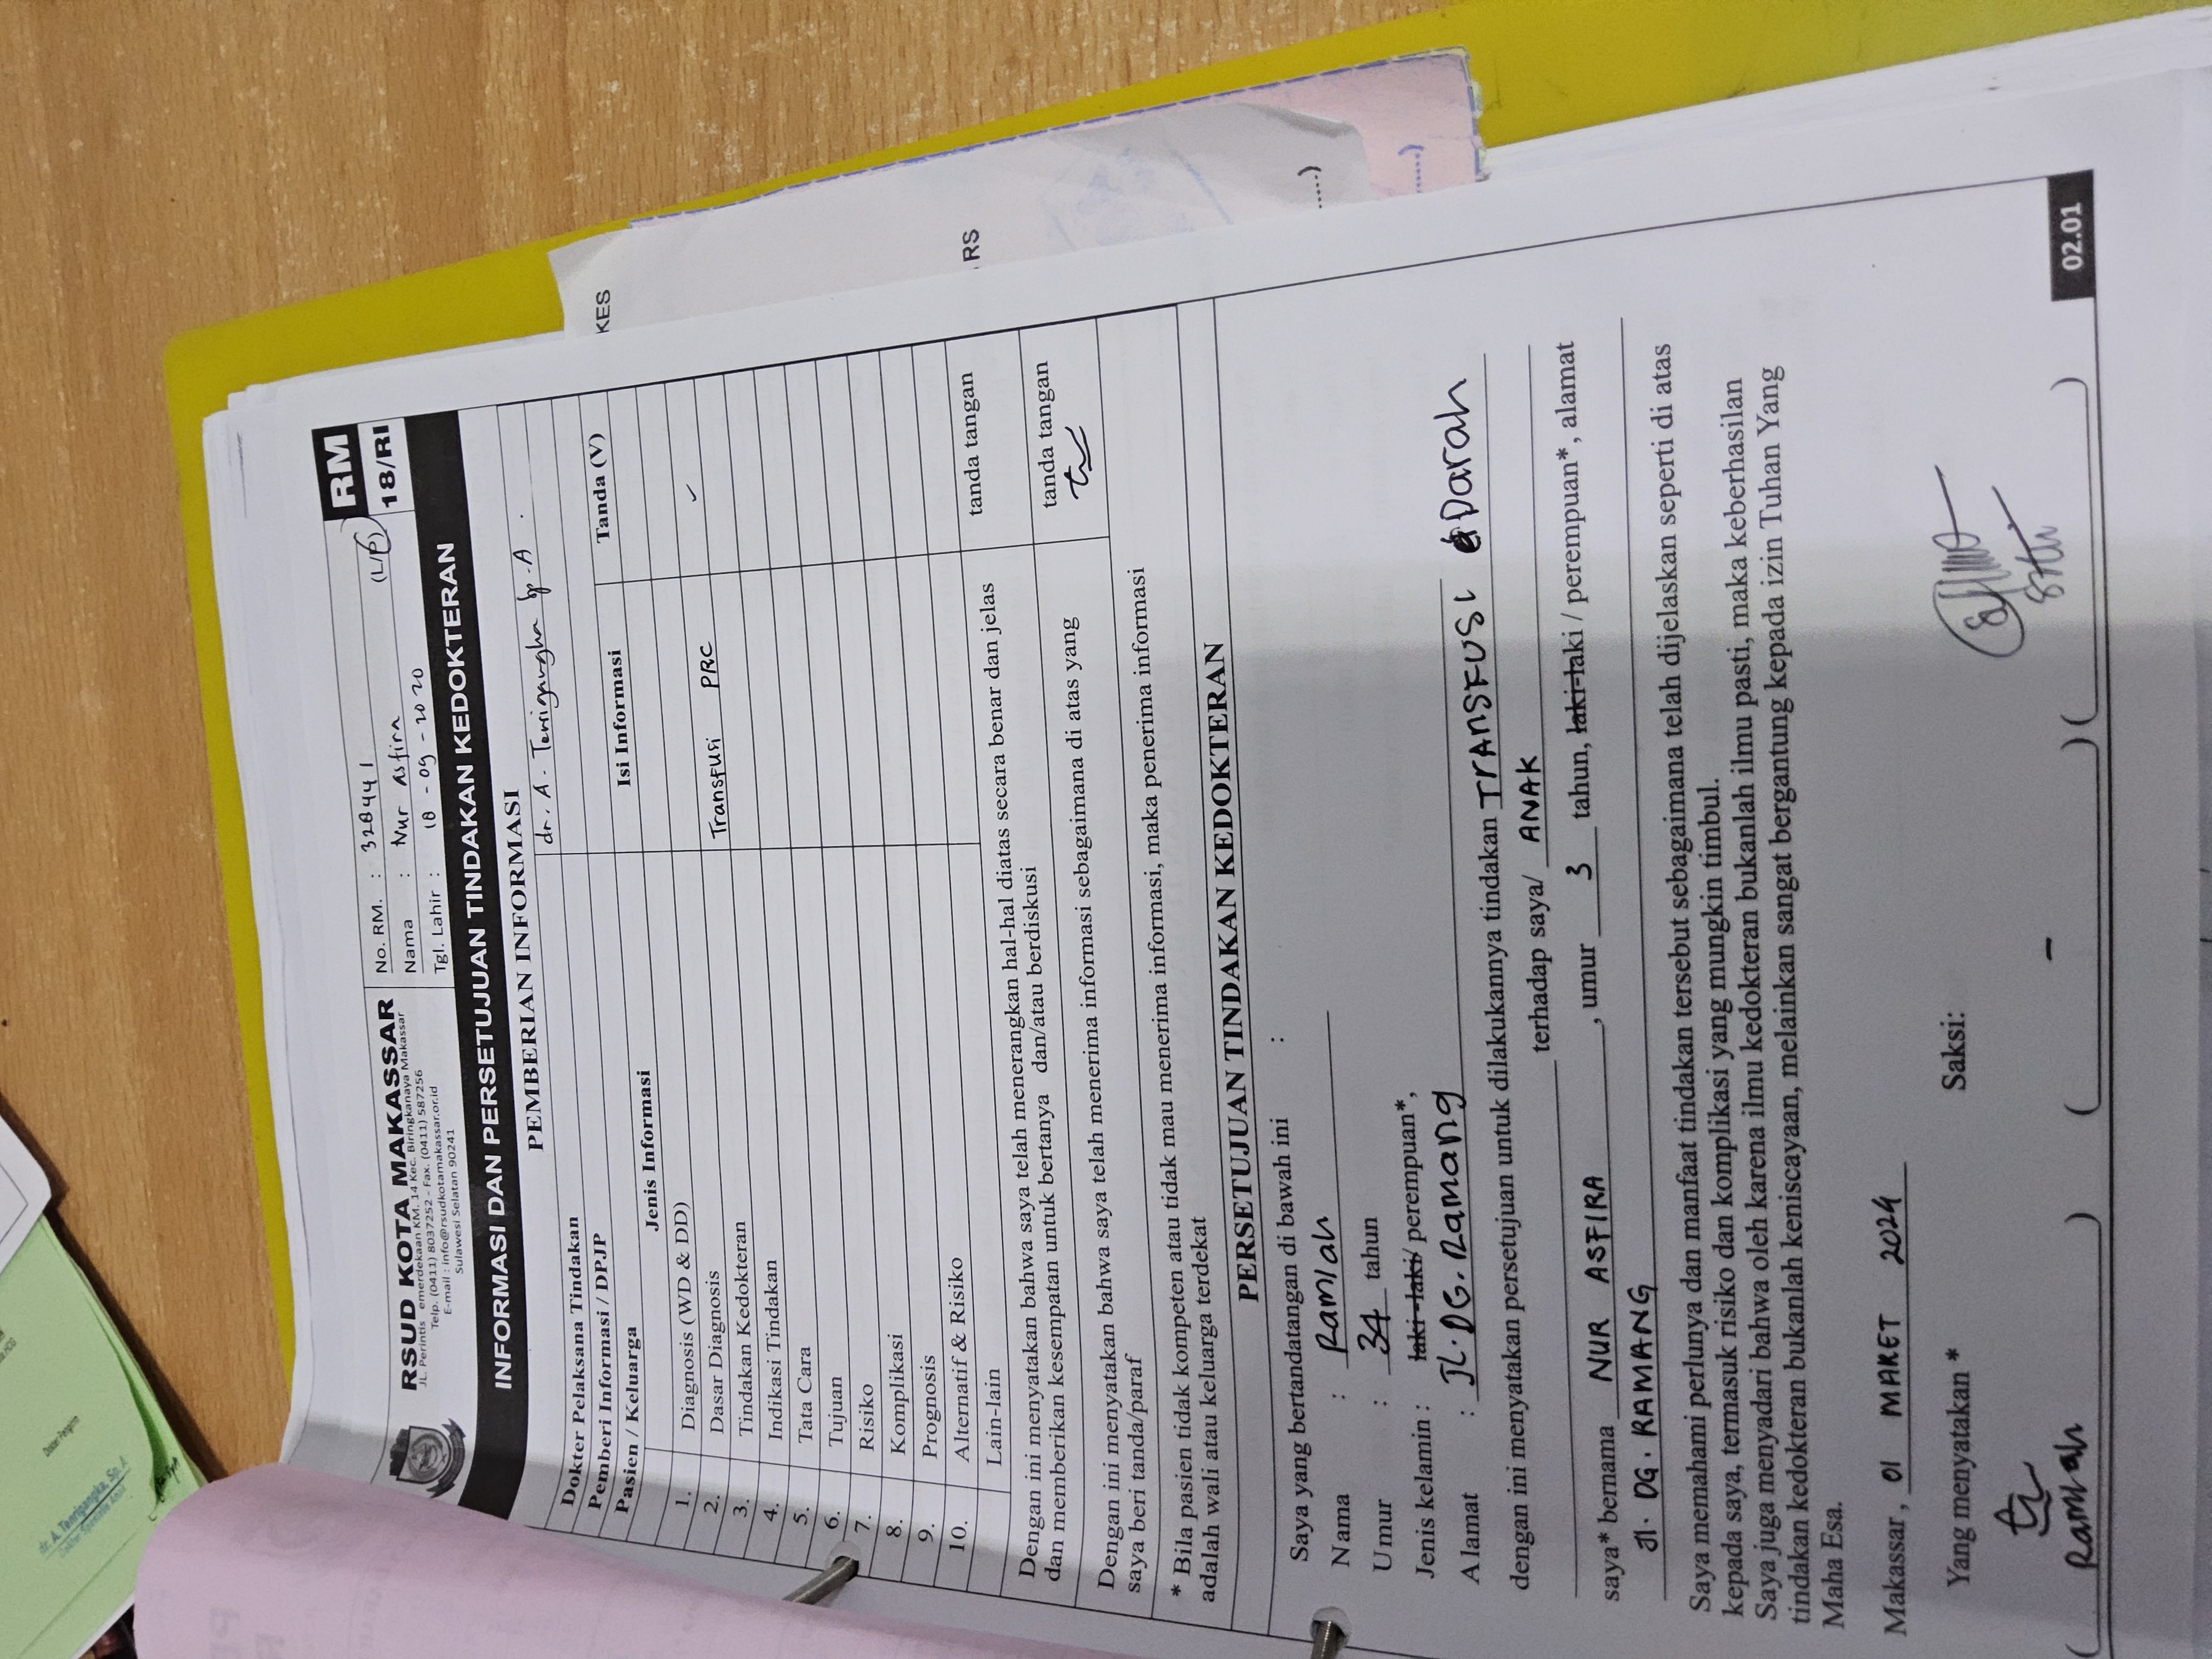 dr. A. Tenrigangka, Sp.A
RSUD KOTA MAKASSAR
JL. Perintis emerdekaan KM. 14 Kec. Biringkanaya Makassar
Telp. (0411) 8037252 - Fax. (0411) 587256
E-mail : info@rsudkotamakassar.or.id
Sulawesi Selatan 90241
No. RM. : 328441
Nama : Nur asfira (L/P)
Tgl. Lahir : 18 - 09 - 2020
RM
18/RI
INFORMASI DAN PERSETUJUAN TINDAKAN KEDOKTERAN
PEMBERIAN INFORMASI
Dokter Pelaksana Tindakan dr. A. Tenrigangka Sp.A
Pemberi Informasi / DPJP
Pasien / Keluarga
Jenis Informasi Isi Informasi Tanda (V)
1. Diagnosis (WD & DD)
2. Dasar Diagnosis
3. Tindakan Kedokteran Transfusi PRC ✓
4. Indikasi Tindakan
5. Tata Cara
6. Tujuan
7. Risiko
8. Komplikasi
9. Prognosis
10. Alternatif & Risiko
Lain-lain
Dengan ini menyatakan bahwa saya telah menerangkan hal-hal diatas secara benar dan jelas tanda tangan
dan memberikan kesempatan untuk bertanya dan/atau berdiskusi
Dengan ini menyatakan bahwa saya telah menerima informasi sebagaimana di atas yang tanda tangan
saya beri tanda/paraf
* Bila pasien tidak kompeten atau tidak mau menerima informasi, maka penerima informasi
adalah wali atau keluarga terdekat
PERSETUJUAN TINDAKAN KEDOKTERAN
Saya yang bertandatangan di bawah ini :
Nama : Ramlah
Umur : 34 tahun
Jenis kelamin : laki-laki/ perempuan*,
Alamat : JL. DG. Ramang
dengan ini menyatakan persetujuan untuk dilakukannya tindakan TRANSFUSI Darah
terhadap saya/ ANAK
saya* bernama NUR ASFIRA , umur 3 tahun, laki-laki / perempuan*, alamat
Jl. DG. RAMANG
Saya memahami perlunya dan manfaat tindakan tersebut sebagaimana telah dijelaskan seperti di atas
kepada saya, termasuk risiko dan komplikasi yang mungkin timbul.
Saya juga menyadari bahwa oleh karena ilmu kedokteran bukanlah ilmu pasti, maka keberhasilan
tindakan kedokteran bukanlah keniscayaan, melainkan sangat bergantung kepada izin Tuhan Yang
Maha Esa.
Makassar , 01 MARET 2024
Yang menyatakan * Saksi:
( Ramlah ) ( - ) ( )
02.01
KES
RS
.....)
.....)